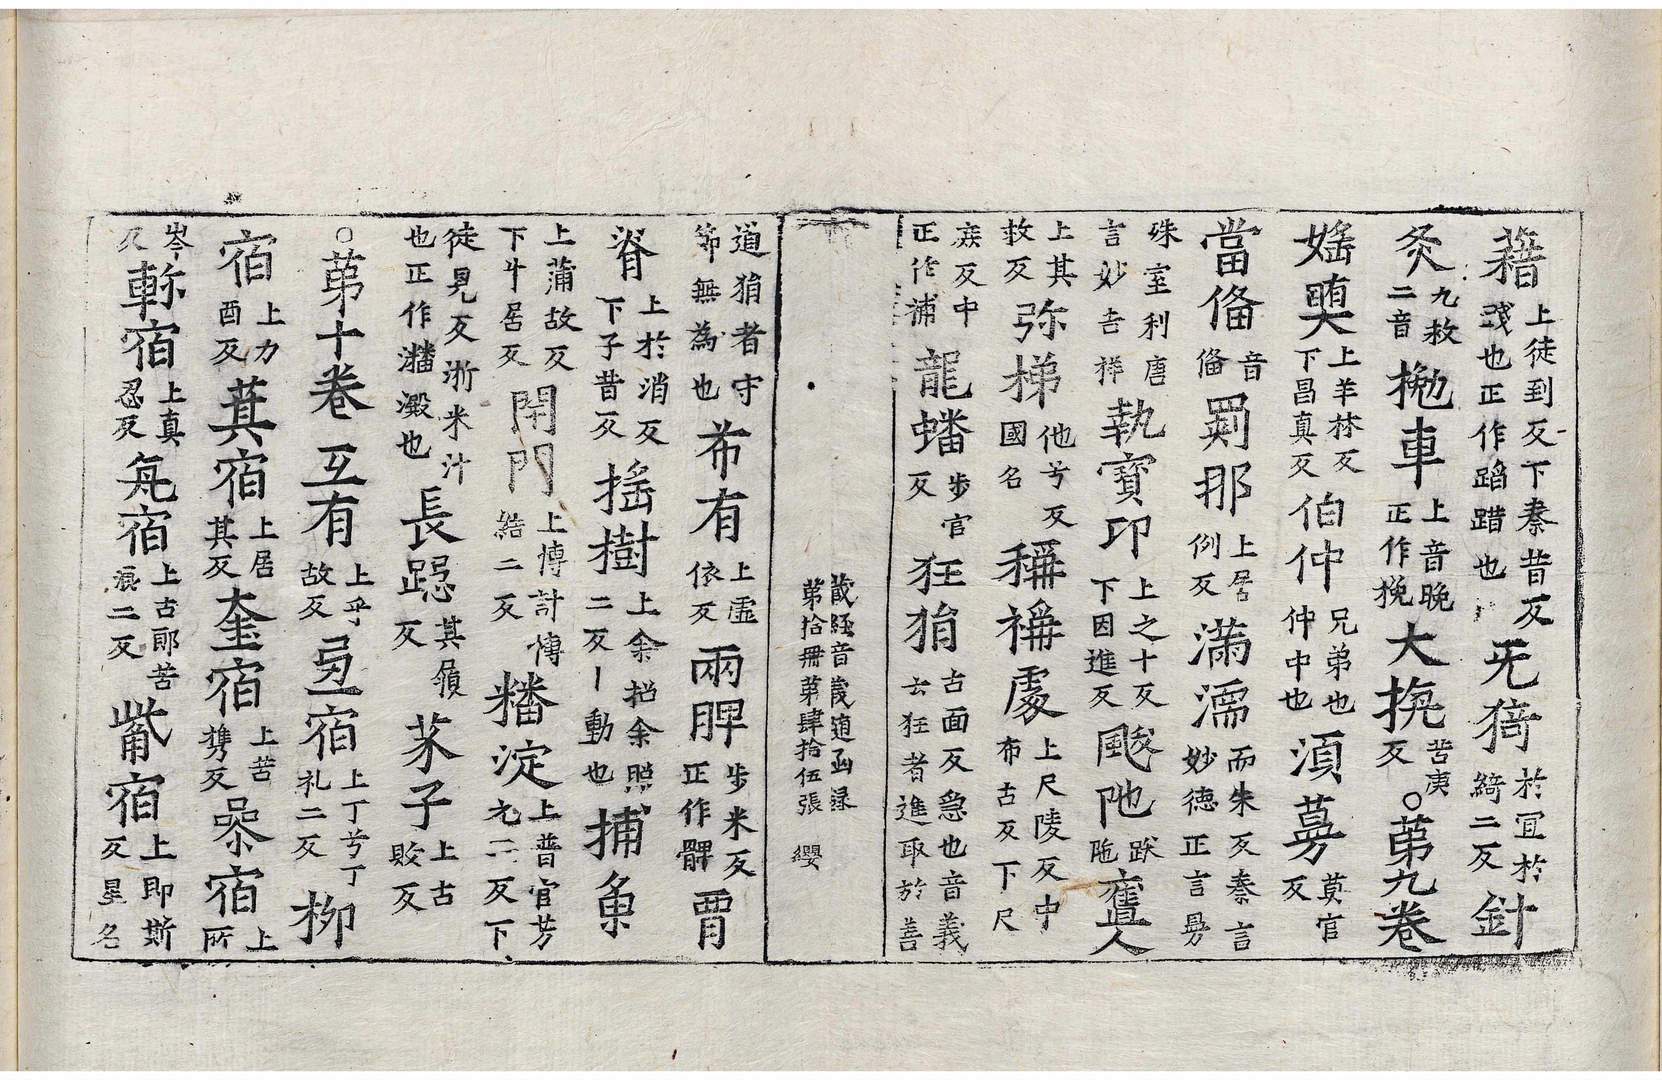 藉上徒到反下秦昔反踐也正作蹈踖也旡猗於宜於綺二反針
灸九救二音㧥車上音晚正作挽大㧋苦庚反○第九卷
婬㬰上羊林反下昌真反伯仲兄弟也仲中也湏蔓莫官反
當俻音俻罽那上居例反滿濡而朱反秦言妙德正言曼
殊室利唐言妙吉祥執寶印上之十反下因進反颰阤跋陁人
上其救反弥梯他兮反國名稱䖏上尺陵反中布古反下尺
疾反中正作浦龍蟠步官反狂狷古面反急也音義云狂者進取於善
藏經音義隨函録
第拾冊第肆拾伍張 纓
道狷者守節無為也布有上虛依反兩脾步米反正作髀罥
脊上於消反下子昔反搖樹上余招余照二反丨動也捕魚
上蒲故反下牛居反閇門上博計博結二反𥼶淀上普官芳元二反下
徒見反淅米汁也正作潘澱也長跽其嶺反芥子上古敗反
○第十卷互有上乎故反氐宿上丁兮丁礼二反柳
宿上力酉反萁宿上居其反奎宿上苦携反喿宿上所
岑反軫宿上真忍反宿上古郎苦浪二反觜宿上即斯反星名